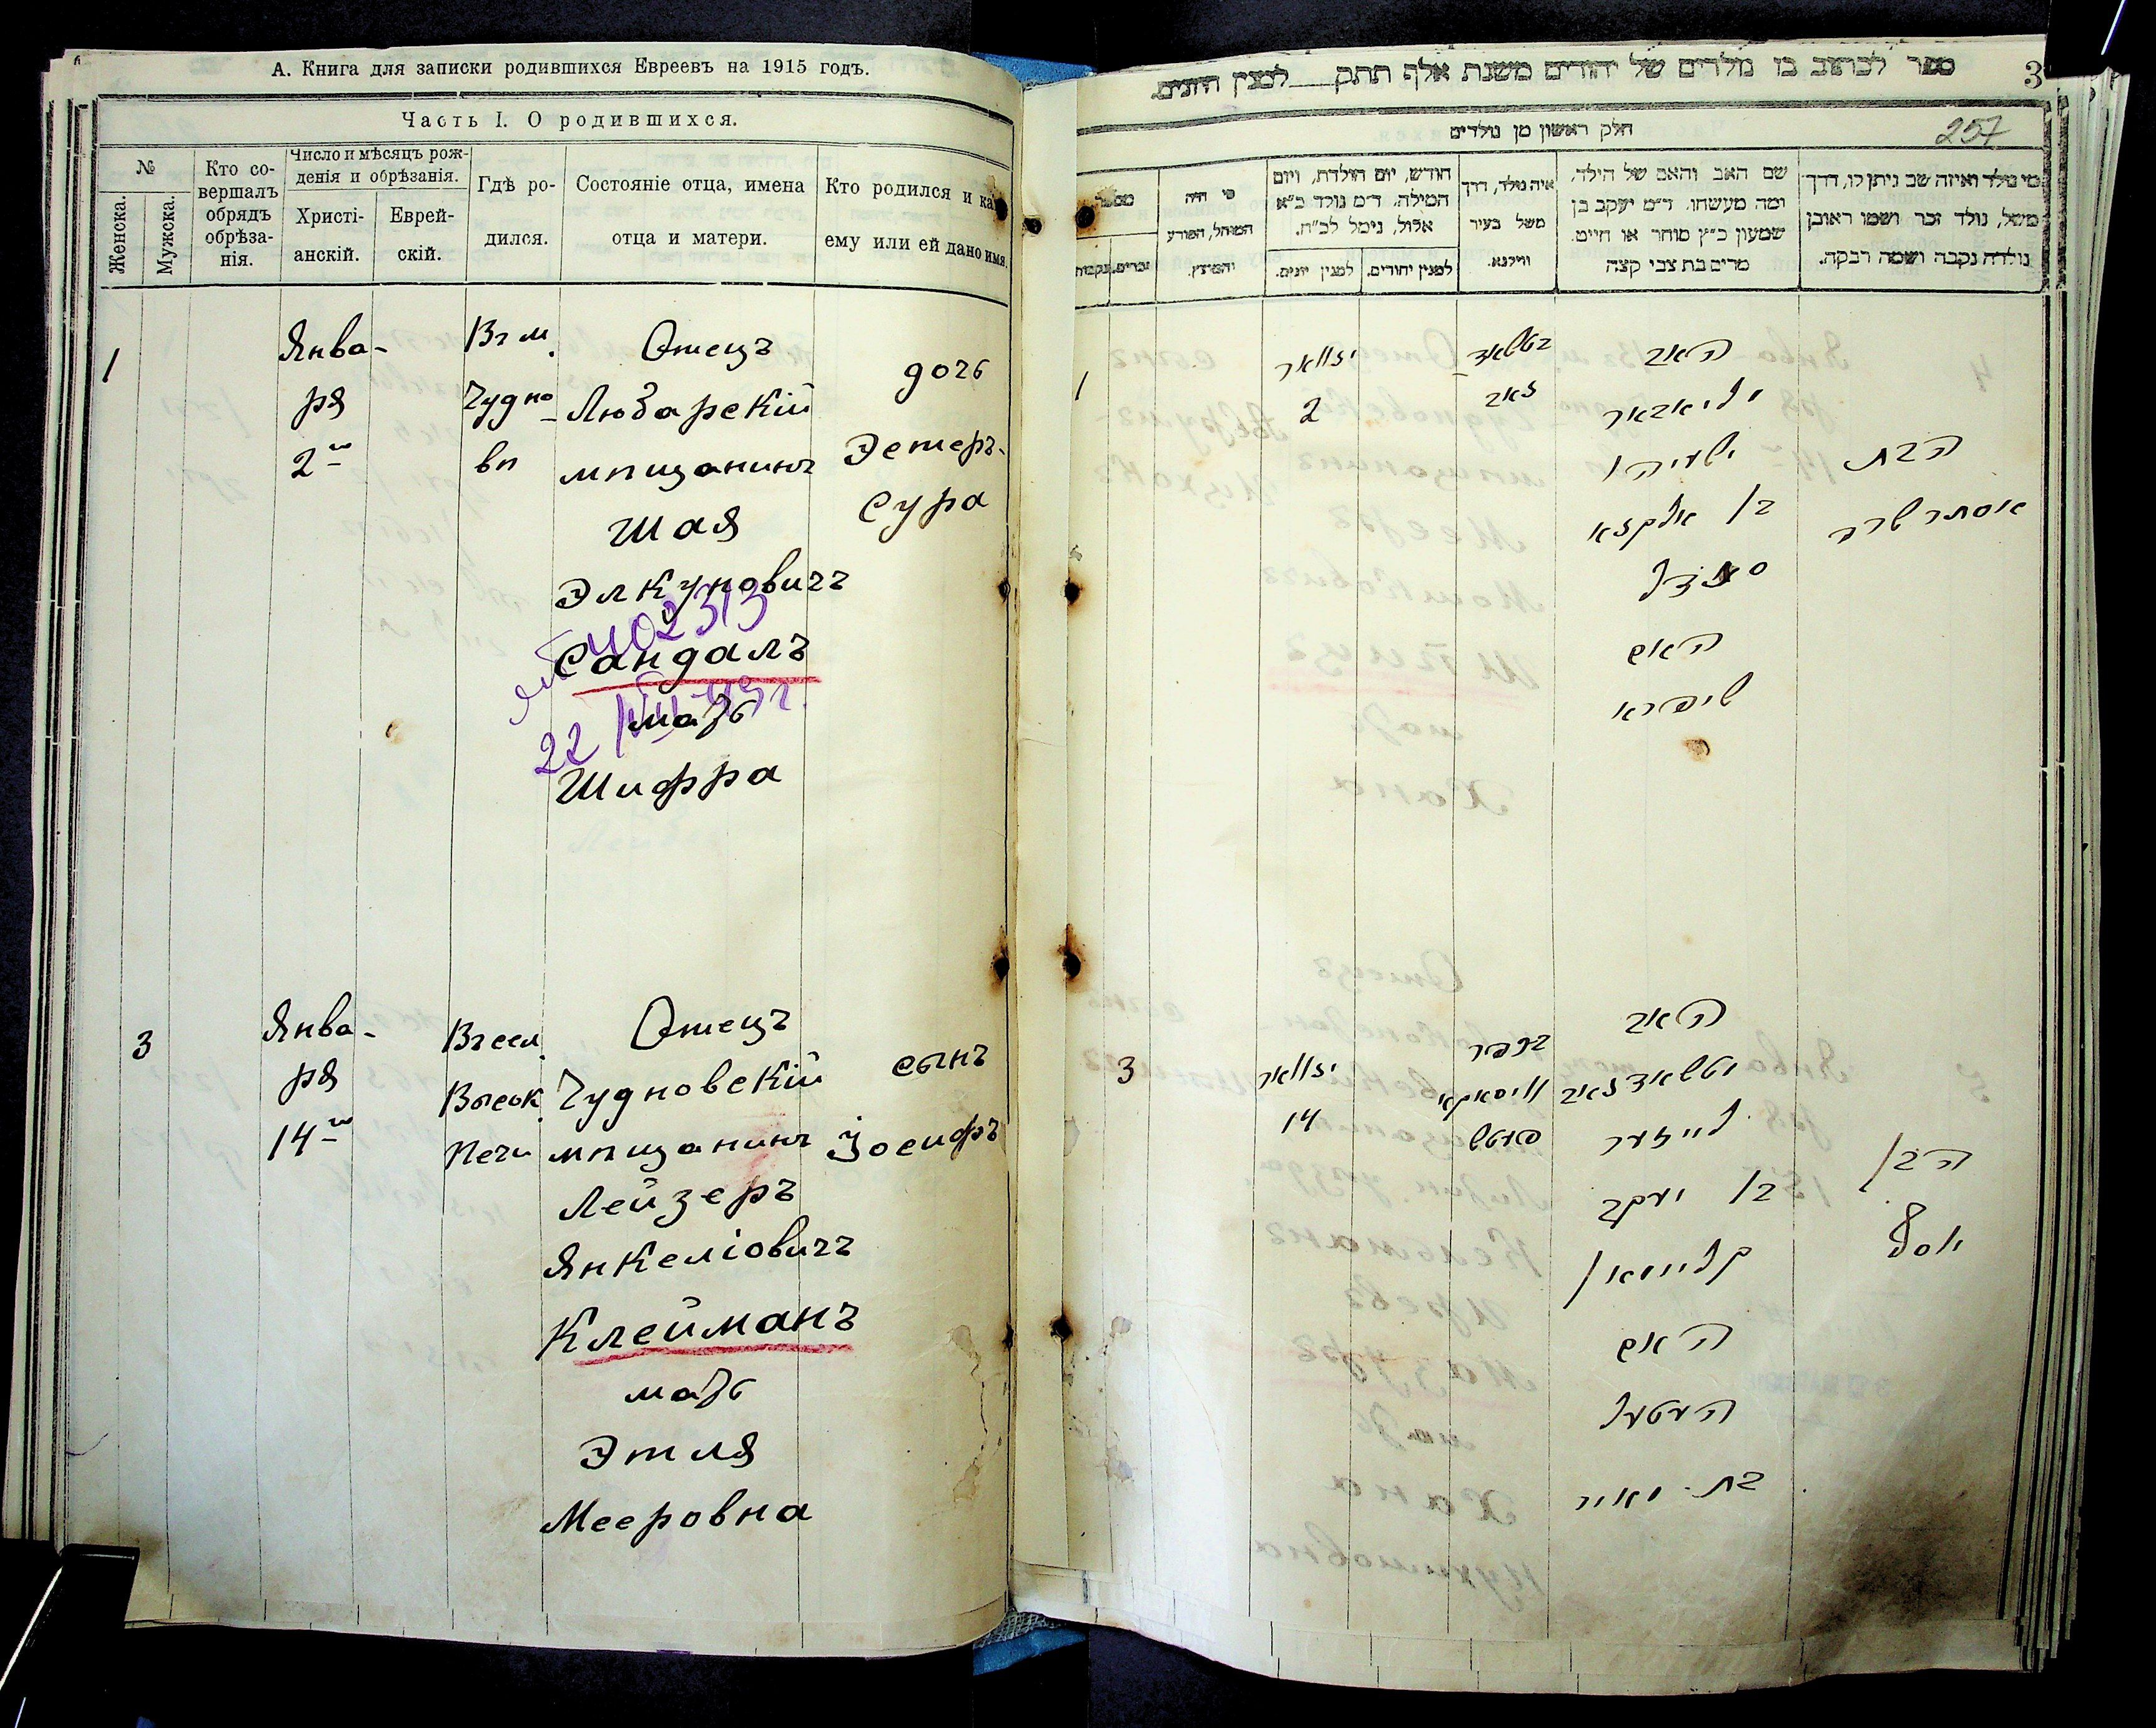 А. Книга для записки родившихся Евреевъ на 1915 годъ.
Часть I. О родившихся.
№
Женска.
Мужска.
Кто со-
вершалъ
обрядъ
обрѣза-
нія.
Число и мѣсяцъ рож-
денія и обрѣзанія.
Христі-
анскій.
Еврей-
скій.
Гдѣ ро-
дился.
Состояніе отца, имена
отца и матери.
Кто родился и ка
ему или ей дано имя.
1
Янва-
ря
2
Въ м.
Чудно-
вѣ
Отецъ
Любарскій
мѣщанинъ
Шая
Элкуновичъ
Сандалъ
мать
Шифра
402313
22
дочь
Эстеръ-
Сура
3
Янва-
ря
14
Въ сел.
Высок.
Печи
Отецъ
Чудновскій
мѣщанинъ
Лейзеръ
Янкеліовичъ
Клейманъ
мать
Этля
Мееровна
сынъ
Іосифъ
ספר לכתוב בו נולדים של יהודים משנת אלף תתק למנין היונים.
3
257
חלק ראשון מן נולדים
מספר
זכרים.
נקבות
מי היה
המוהל, הפורע
והמוצץ.
חודש, יום הולדת, ויום
המילה. ד״מ נולד כ״א
אלול, נימל לכ״ח.
למנין יונים.
למנין יהודים.
איה נולד, דרך
משל בעיר
ווילנא.
שם האב והאם של הילד,
ומה מעשהו. ד״מ יעקב בן
שמעון כ״ץ סוחר או חייט.
מרים בת צבי קצה
מי נולד ואיזה שם ניתן לו, דרך
משל, נולד זכר ושמו ראובן
נולדה נקבה ושמה רבקה.
1
יאנואר
2
האב
ליובאר
ישעיהו
בן אלקנא
סאנדל
האם
שיפרא
הבת
אסתר שרה
3
יאנואר
14
בכפר
האב
לייזער
בן יעקב
קליימאן
האם
העטעל
בת מאיר
הבן
יוסף